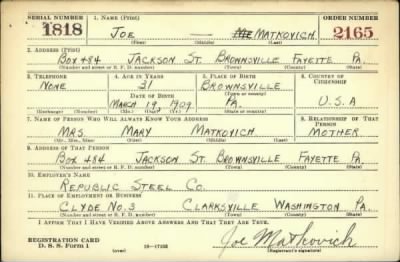 SERIAL NUMBER 1. NAME (Print) ORDER NUMBER
1818 JOE — MATKOVICH 2165
(First) (Middle) (Last)
2. ADDRESS (Print)
BOX 484 JACKSON ST. BROWNSVILLE FAYETTE PA.
(Number and street or R. F. D. number) (Town) (County) (State)
3. TELEPHONE 4. AGE IN YEARS 5. PLACE OF BIRTH 6. COUNTRY OF CITIZENSHIP
NONE 31 BROWNSVILLE
DATE OF BIRTH (Town or county)
MARCH 19 1909 PA. U.S.A
(Exchange) (Number) (Mo.) (Day) (Yr.) (State or country)
7. NAME OF PERSON WHO WILL ALWAYS KNOW YOUR ADDRESS 8. RELATIONSHIP OF THAT PERSON
MRS. MARY MATKOVICH MOTHER
(Mr., Mrs., Miss) (First) (Middle) (Last)
9. ADDRESS OF THAT PERSON
BOX 484 JACKSON ST. BROWNSVILLE FAYETTE PA.
(Number and street or R. F. D. number) (Town) (County) (State)
10. EMPLOYER'S NAME
REPUBLIC STEEL CO.
11. PLACE OF EMPLOYMENT OR BUSINESS
CLYDE NO. 3 CLARKSVILLE WASHINGTON PA.
(Number and street or R. F. D. number) (Town) (County) (State)
I AFFIRM THAT I HAVE VERIFIED ABOVE ANSWERS AND THAT THEY ARE TRUE.
REGISTRATION CARD
D. S. S. Form 1 (over) 16—17105 Joe Matkovich
(Registrant's signature)